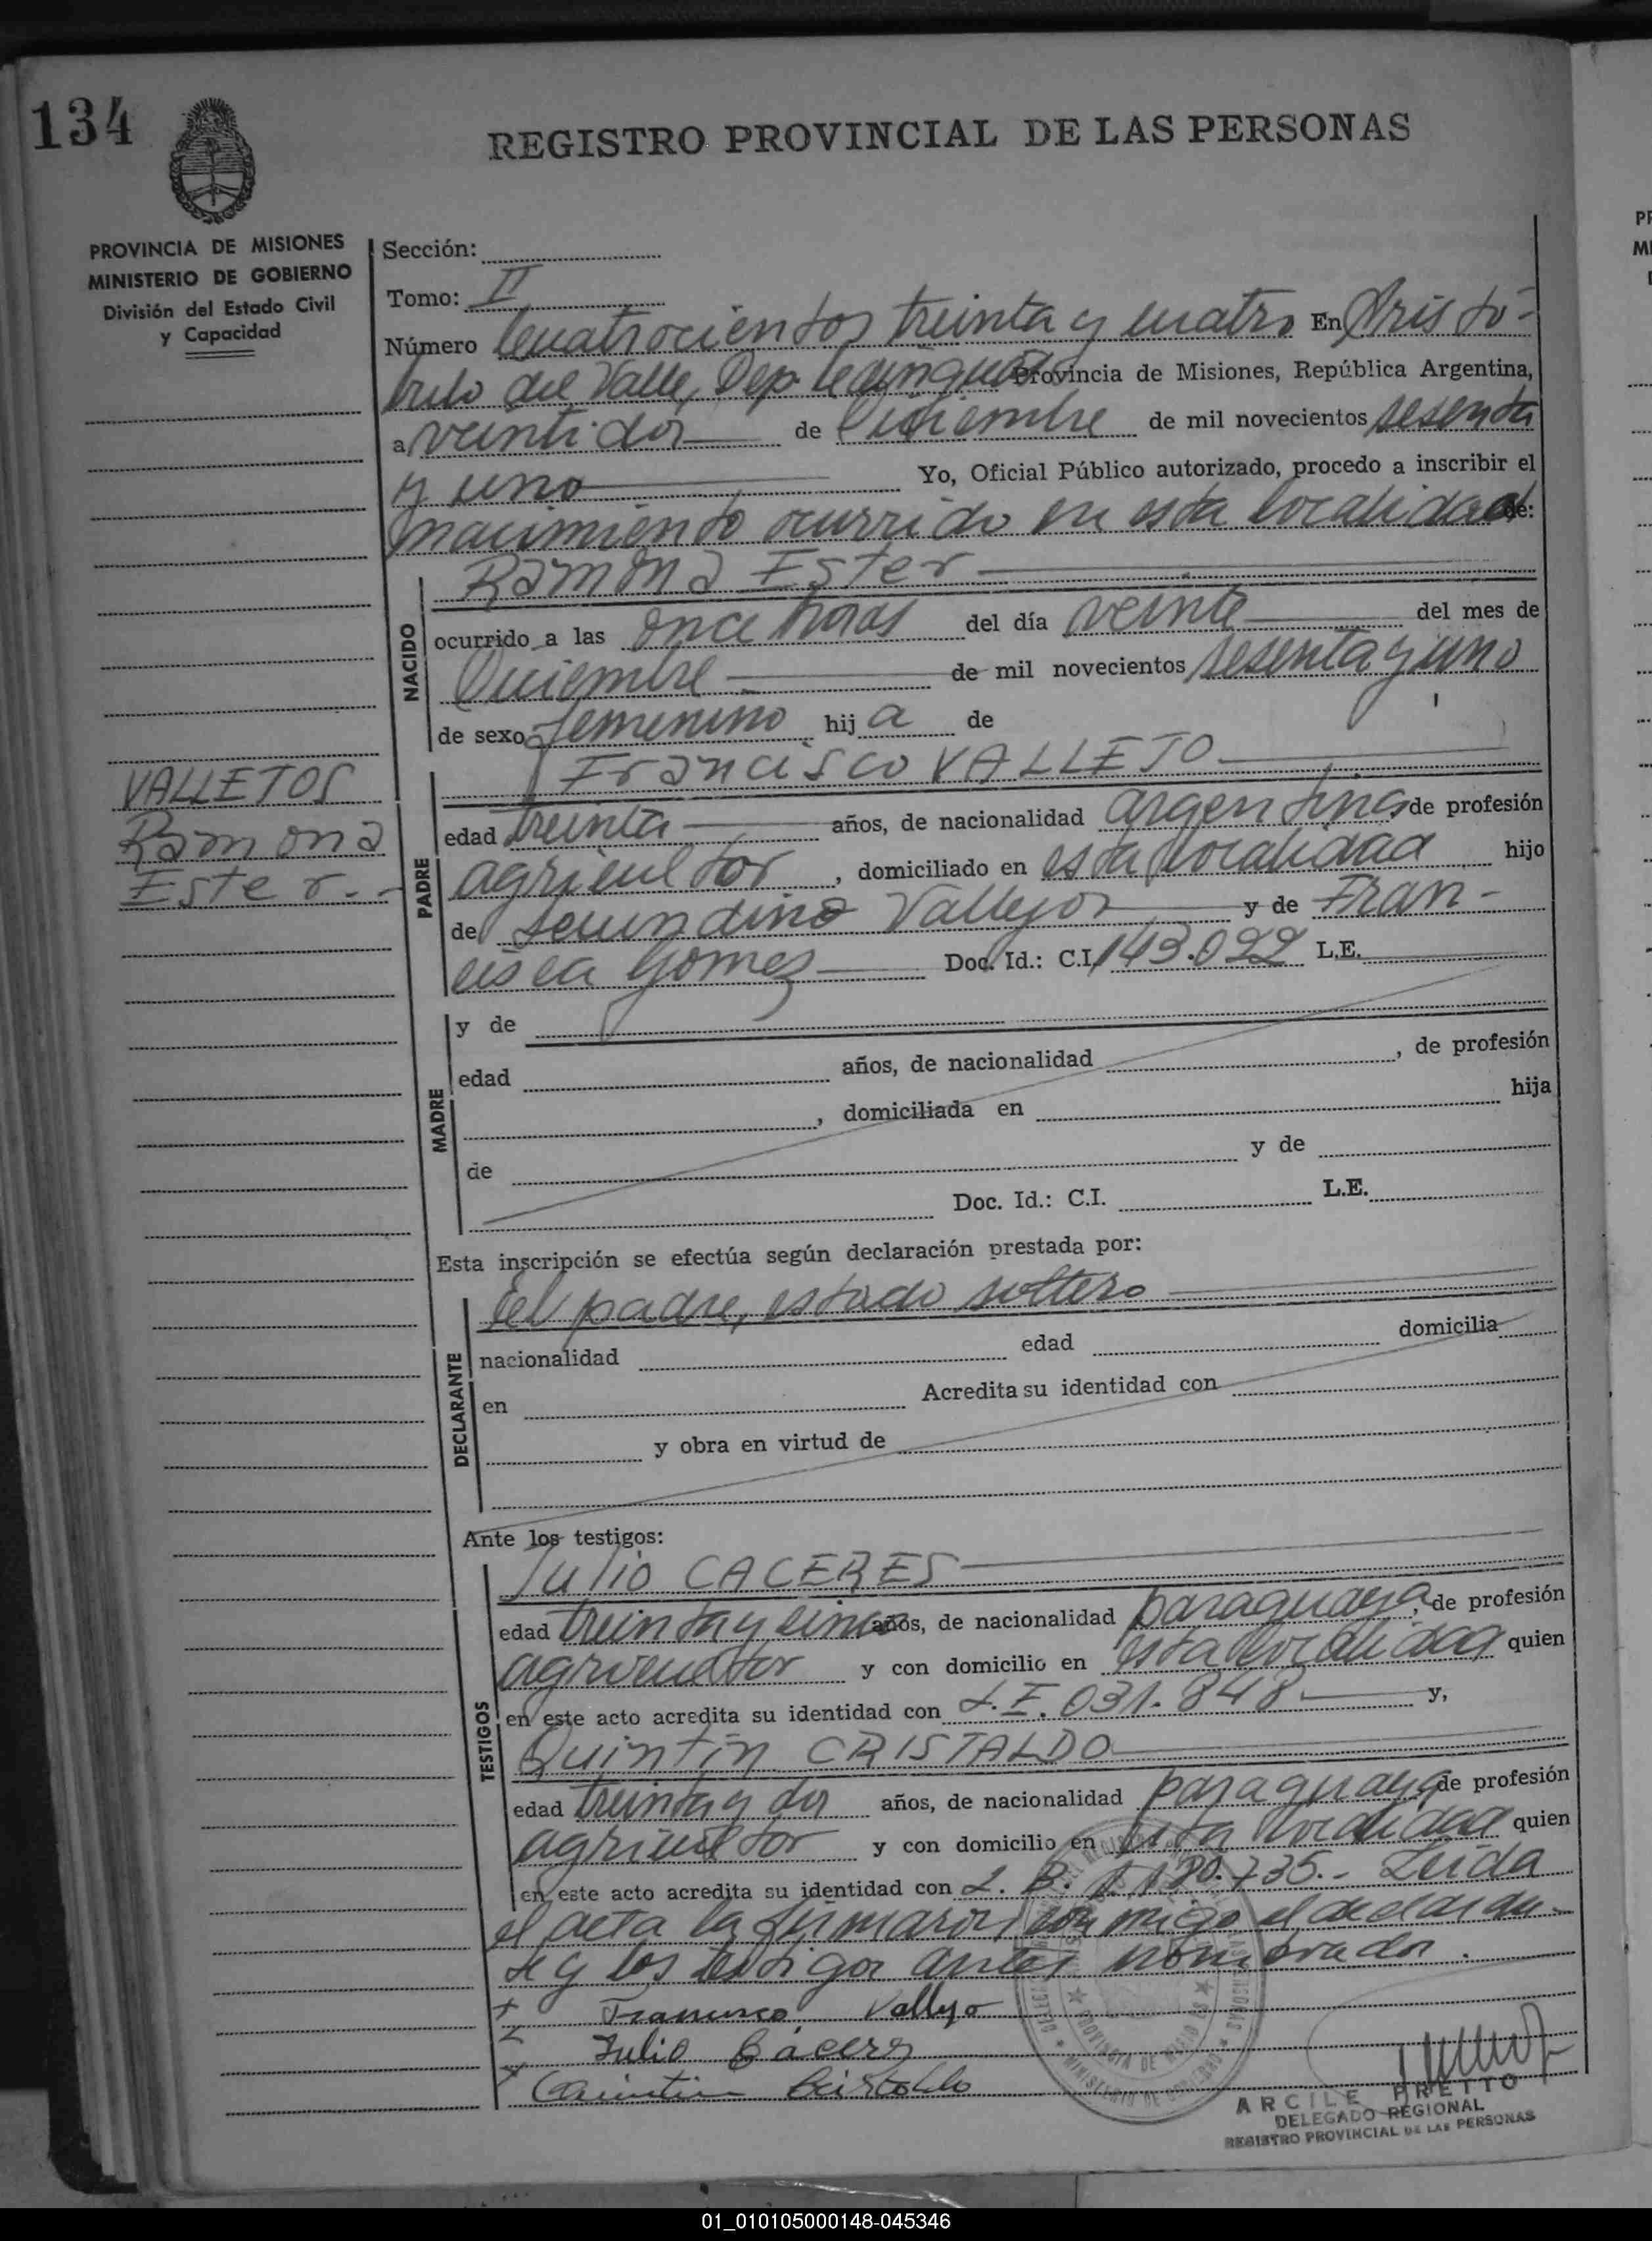 134
REGISTRO PROVINCIAL DE LAS PERSONAS
PROVINCIA DE MISIONES
MINISTERIO DE GOBIERNO
División del Estado Civil
y Capacidad
Sección:
Tomo: II
Número Cuatrocientos treinta y cuatro En Aristó-
bulo del Valle, Dep. Provincia de Misiones, República Argentina,
a veintidos de Diciembre de mil novecientos sesenta
y uno Yo, Oficial Público autorizado, procedo a inscribir el
nacimiento ocurrido en esta localidad de:
NACIDO
Ramona Ester
ocurrido a las once horas del día veinte del mes de
Diciembre de mil novecientos sesenta y uno
de sexo femenino hij a de
VALLEJOS
Ramona
Ester.-
PADRE
Francisco VALLEJO
edad treinta años, de nacionalidad argentina, de profesión
agricultor, domiciliado en esta localidad hijo
de Secundino Vallejos y de Fran-
cisca Gomez Doc. Id.: C.I. 143.022 L.E.
MADRE
y de
edad años, de nacionalidad , de profesión
, domiciliada en hija
de y de
Doc. Id.: C.I. L.E.
Esta inscripción se efectúa según declaración prestada por:
DECLARANTE
El padre, estado soltero
nacionalidad edad domicilia
en Acredita su identidad con
y obra en virtud de
Ante los testigos:
TESTIGOS
Julio CACERES
edad treinta y cinco años, de nacionalidad paraguaya, de profesión
agricultor y con domicilio en esta localidad quien
en este acto acredita su identidad con 031.848 y,
Quintín CRISTALDO
edad treinta y dos años, de nacionalidad paraguaya de profesión
agricultor y con domicilio en esta localidad quien
en este acto acredita su identidad con Leida
el acta la firmaron conmigo el declaran-
te y los testigos antes nombrados.
Francisco Vallejo
Julio Cáceres
Quintin Cristaldo
ARCILE PRETTO
DELEGADO REGIONAL
REGISTRO PROVINCIAL DE LAS PERSONAS
01_010105000148-045346